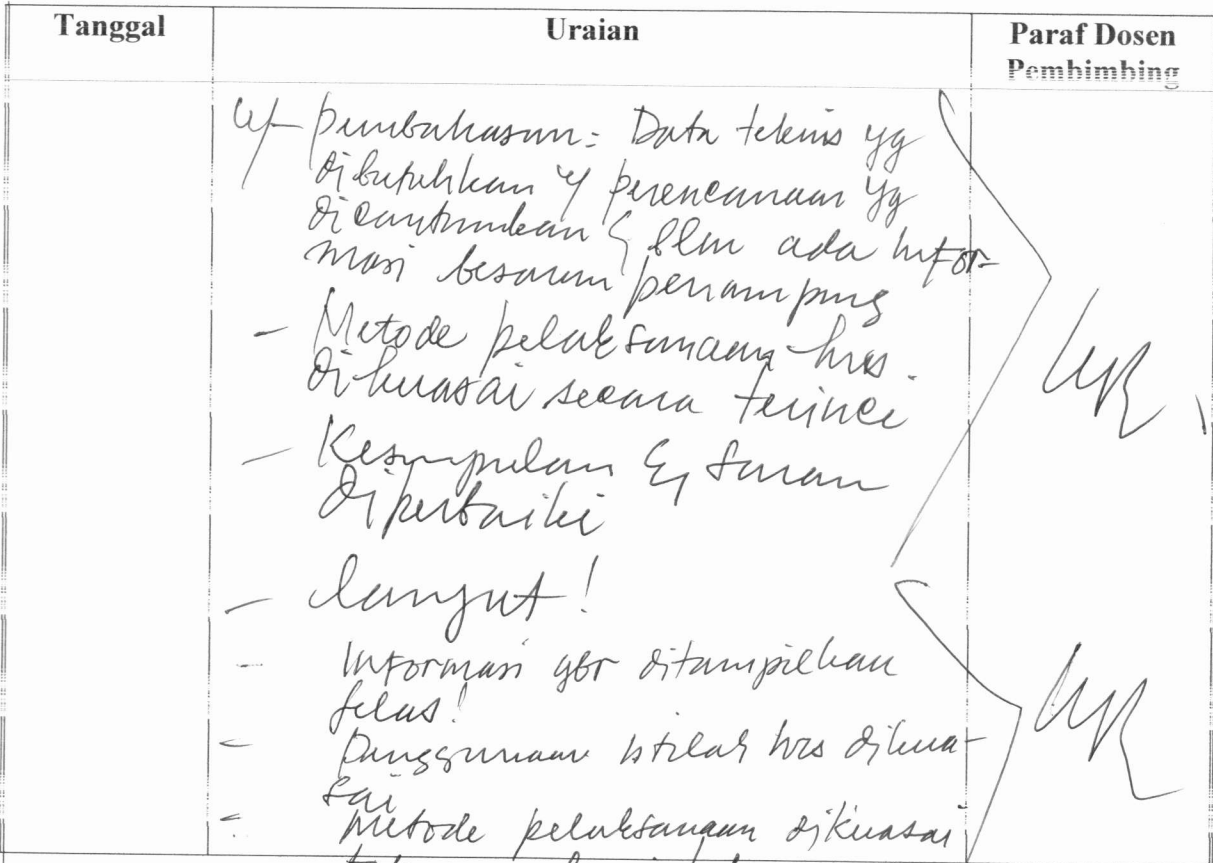 Tanggal
Uraian
Paraf Dosen
Pembimbing
pembahasan: Data teknis yg
dibutuhkan u/ perencanaan yg
dicantumkan & blm ada infor-
masi besaran penampang
- Metode pelaksanaan hrs
dikuasai secara terinci
- Kesimpulan & saran
diperbaiki
- lanjut!
- Informasi gbr ditampilkan
jelas!
- Penggunaan istilah hrs dikua-
sai
- Metode pelaksanaan dikuasai